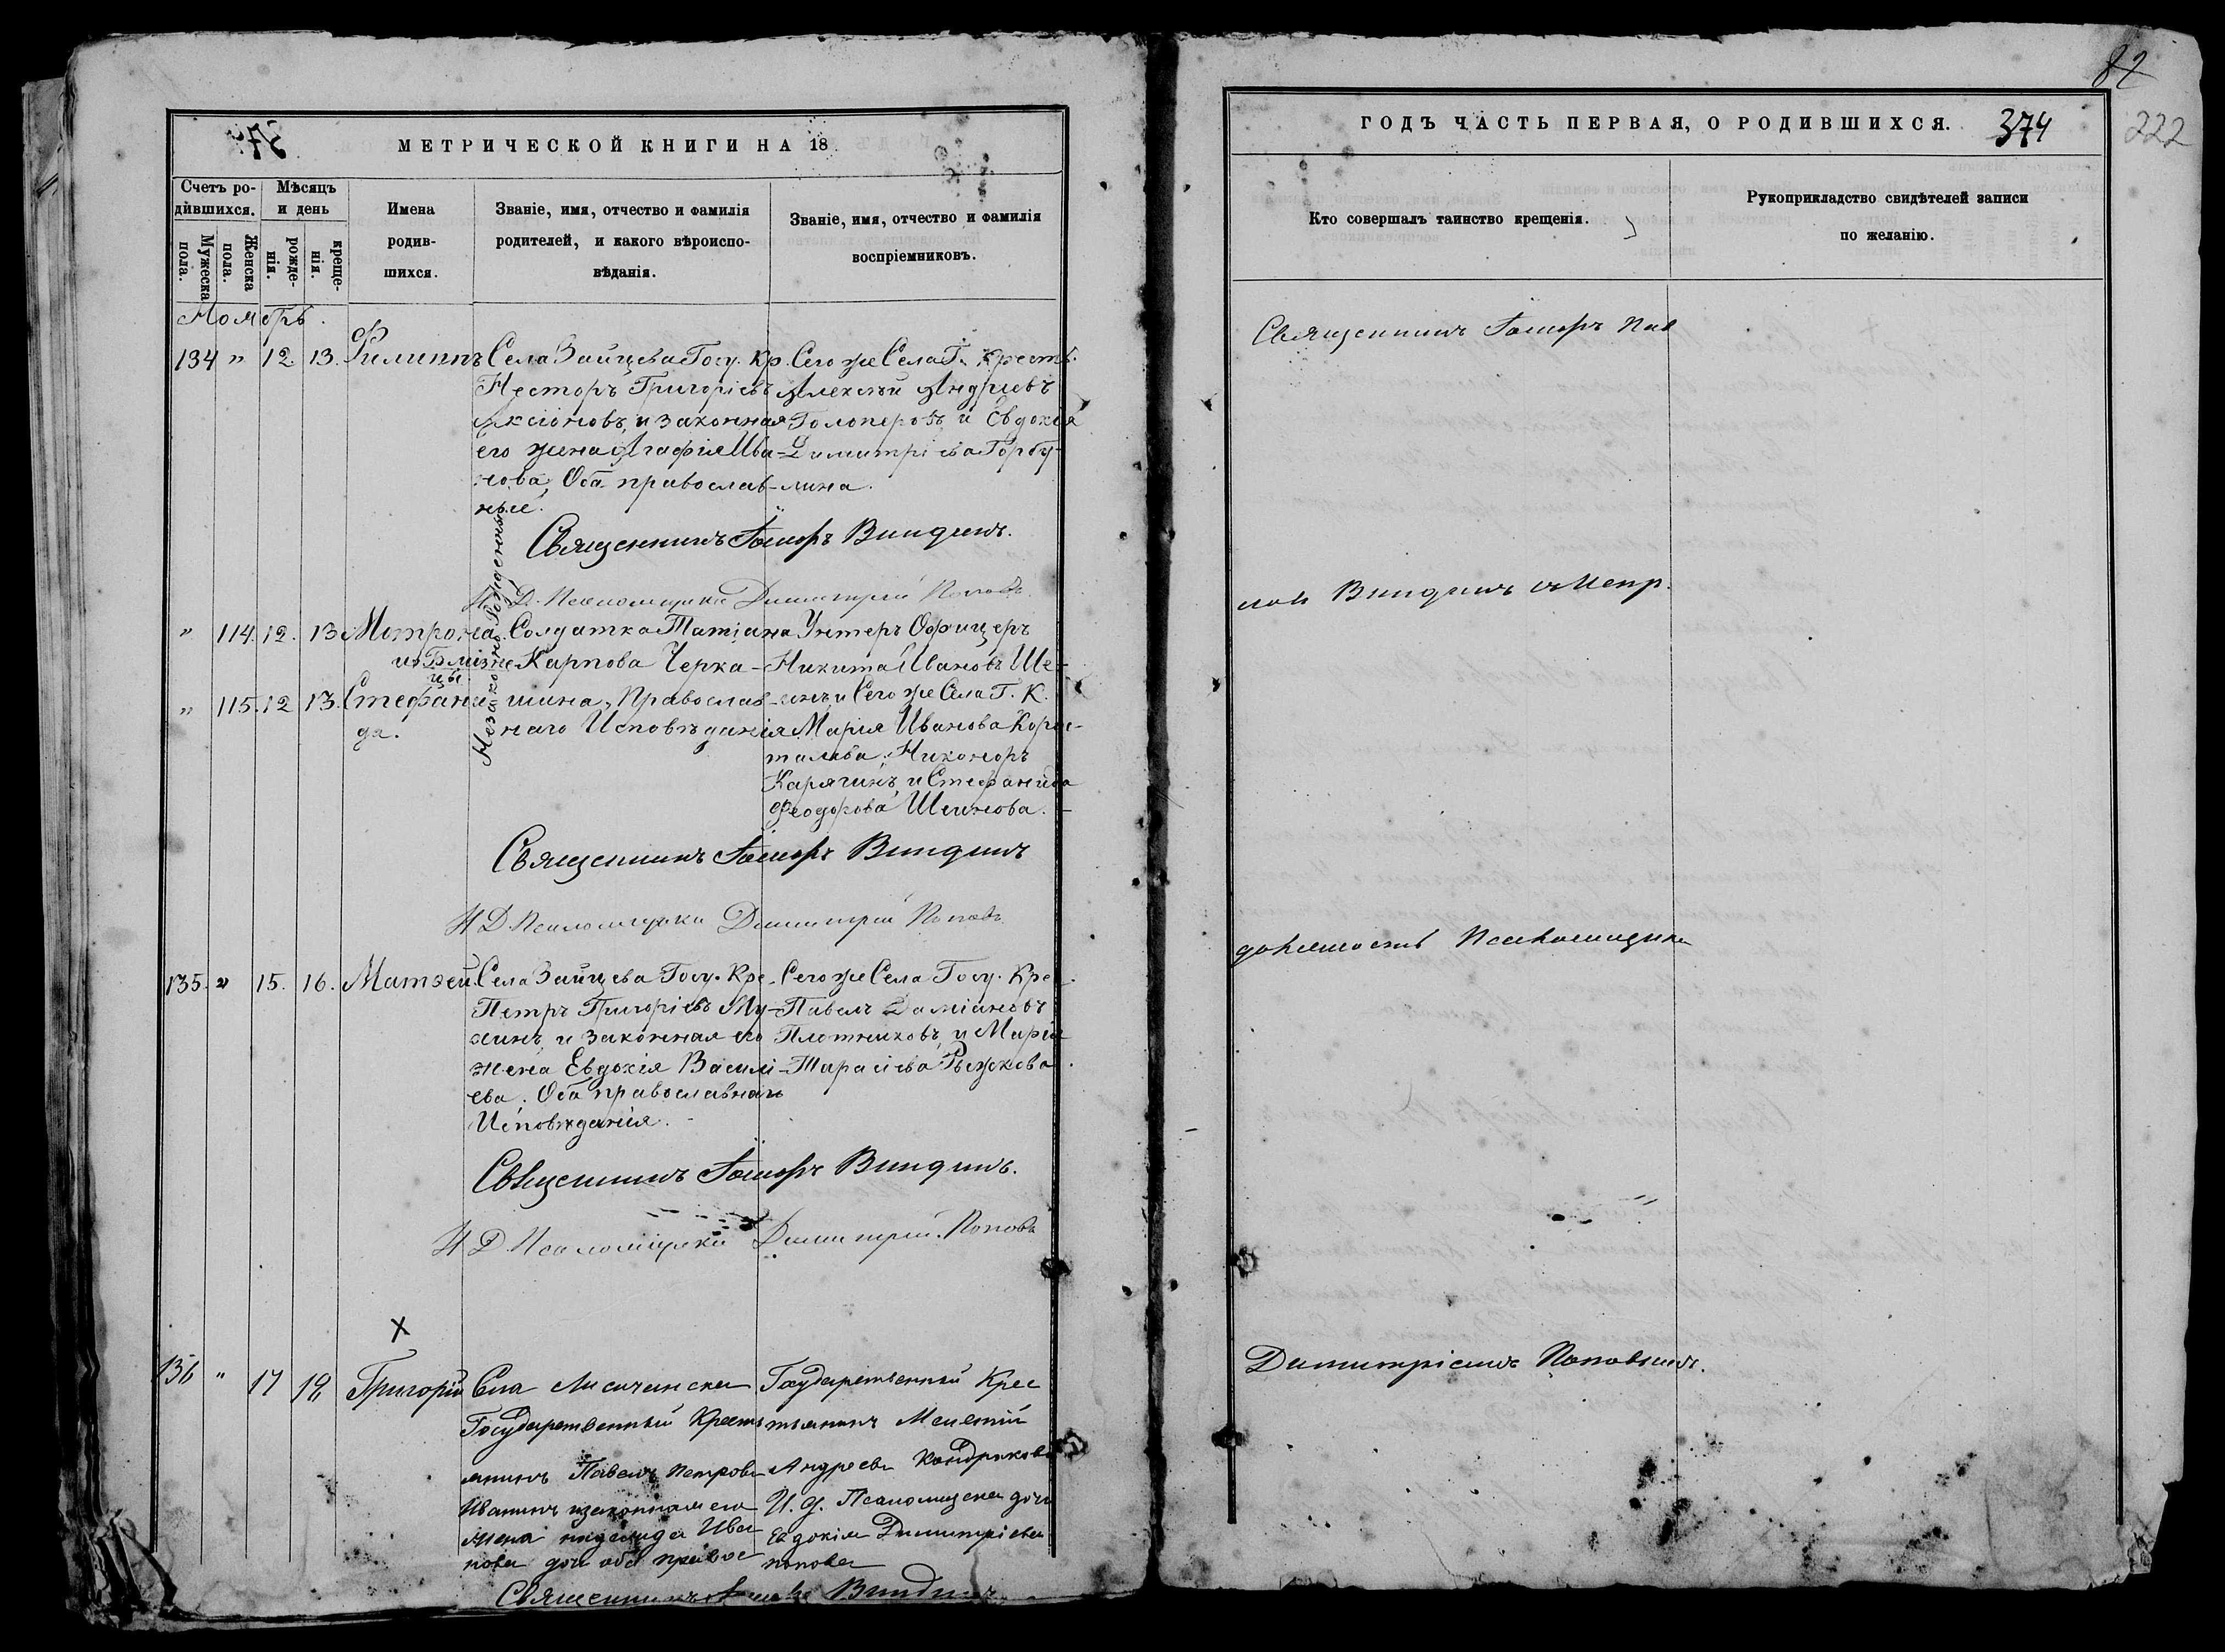 МЕТРИЧЕСКОЙ КНИГИ НА 18
Счетъ ро-
дившихся.
Мѣсяцъ
и день
Мужеска
пола.
Женска
пола.
рожде-
нія.
креще-
нія.
Имена
родив-
шихся.
Званіе, имя, отчество и фамилія
родителей, и какого вѣроиспо-
вѣданія.
Званіе, имя, отчество и фамилія
воспріемниковъ.
Ноябрь.
134 " 12. 13. Филиппъ
Села Зайцева Госу. Кр.
Несторъ Григоріевъ
Аксіоновъ, и законная
его жена Агафія Ива-
нова, Оба православ-
ные.
Сего же Села Г. Крест.
Алексѣй Андреевъ
Голоперовъ, и Евдокія
Димитріева Горбу-
лина.
Священникъ Іаковъ Виндинъ.
И. Д. Псаломщика Димитрій Поповъ
" 114. 12. 13 Матрона
изъ Близне
цы
" 115. 12 13. Стефани
да.
Незаконно рожденныя
Солдатка Татіана
Карпова Черка-
шина, Православ-
наго Исповѣданія
Унтеръ Офицеръ
Никита Ивановъ Ше-
инъ и Сего же Села Г. К.
Марія Иванова Корос-
талева; Никоноръ
Карягинъ, и Стефанида
Феодорова Шеинова.
Священникъ Іаковъ Виндинъ
И Д Псаломщика Димитрій Поповъ
135. " 15. 16. Матвей.
Села Зайцева Госу. Кре.
Петръ Григоріевъ Му-
хинъ, и законная его
жена Евдокія Василі-
ева. Оба православнаго
Исповѣданія.
Сего же Села Госу. Кре.
Павелъ Даміановъ
Плотниковъ, и Марія
Тарасіева Рыжкова.
Священникъ Іаковъ Виндинъ.
И Д Псаломщика Димитрій Поповъ
136 " 17 18 Григорій
Села Лисичанска
Государственный Кресть
янинъ Павелъ Петровъ
Иванинъ изаконная его
жена Ива
нова дочь оба правос
Государственный Крес
тьянинъ
Андреевъ Кондрюковъ
И. д. Псаломщека дочь
Евдокія Димитріева
попова
Священникъ Іаковъ Виндинъ
82
ГОДЪ ЧАСТЬ ПЕРВАЯ, О РОДИВШИХСЯ.
374
222
Кто совершалъ таинство крещенія.
Рукоприкладство свидѣтелей записи
по желанію.
Священникъ Іаковъ Пав
ловъ Виндинъ съ Испр.
должность Псаломщика
Димитріемъ Поповымъ.